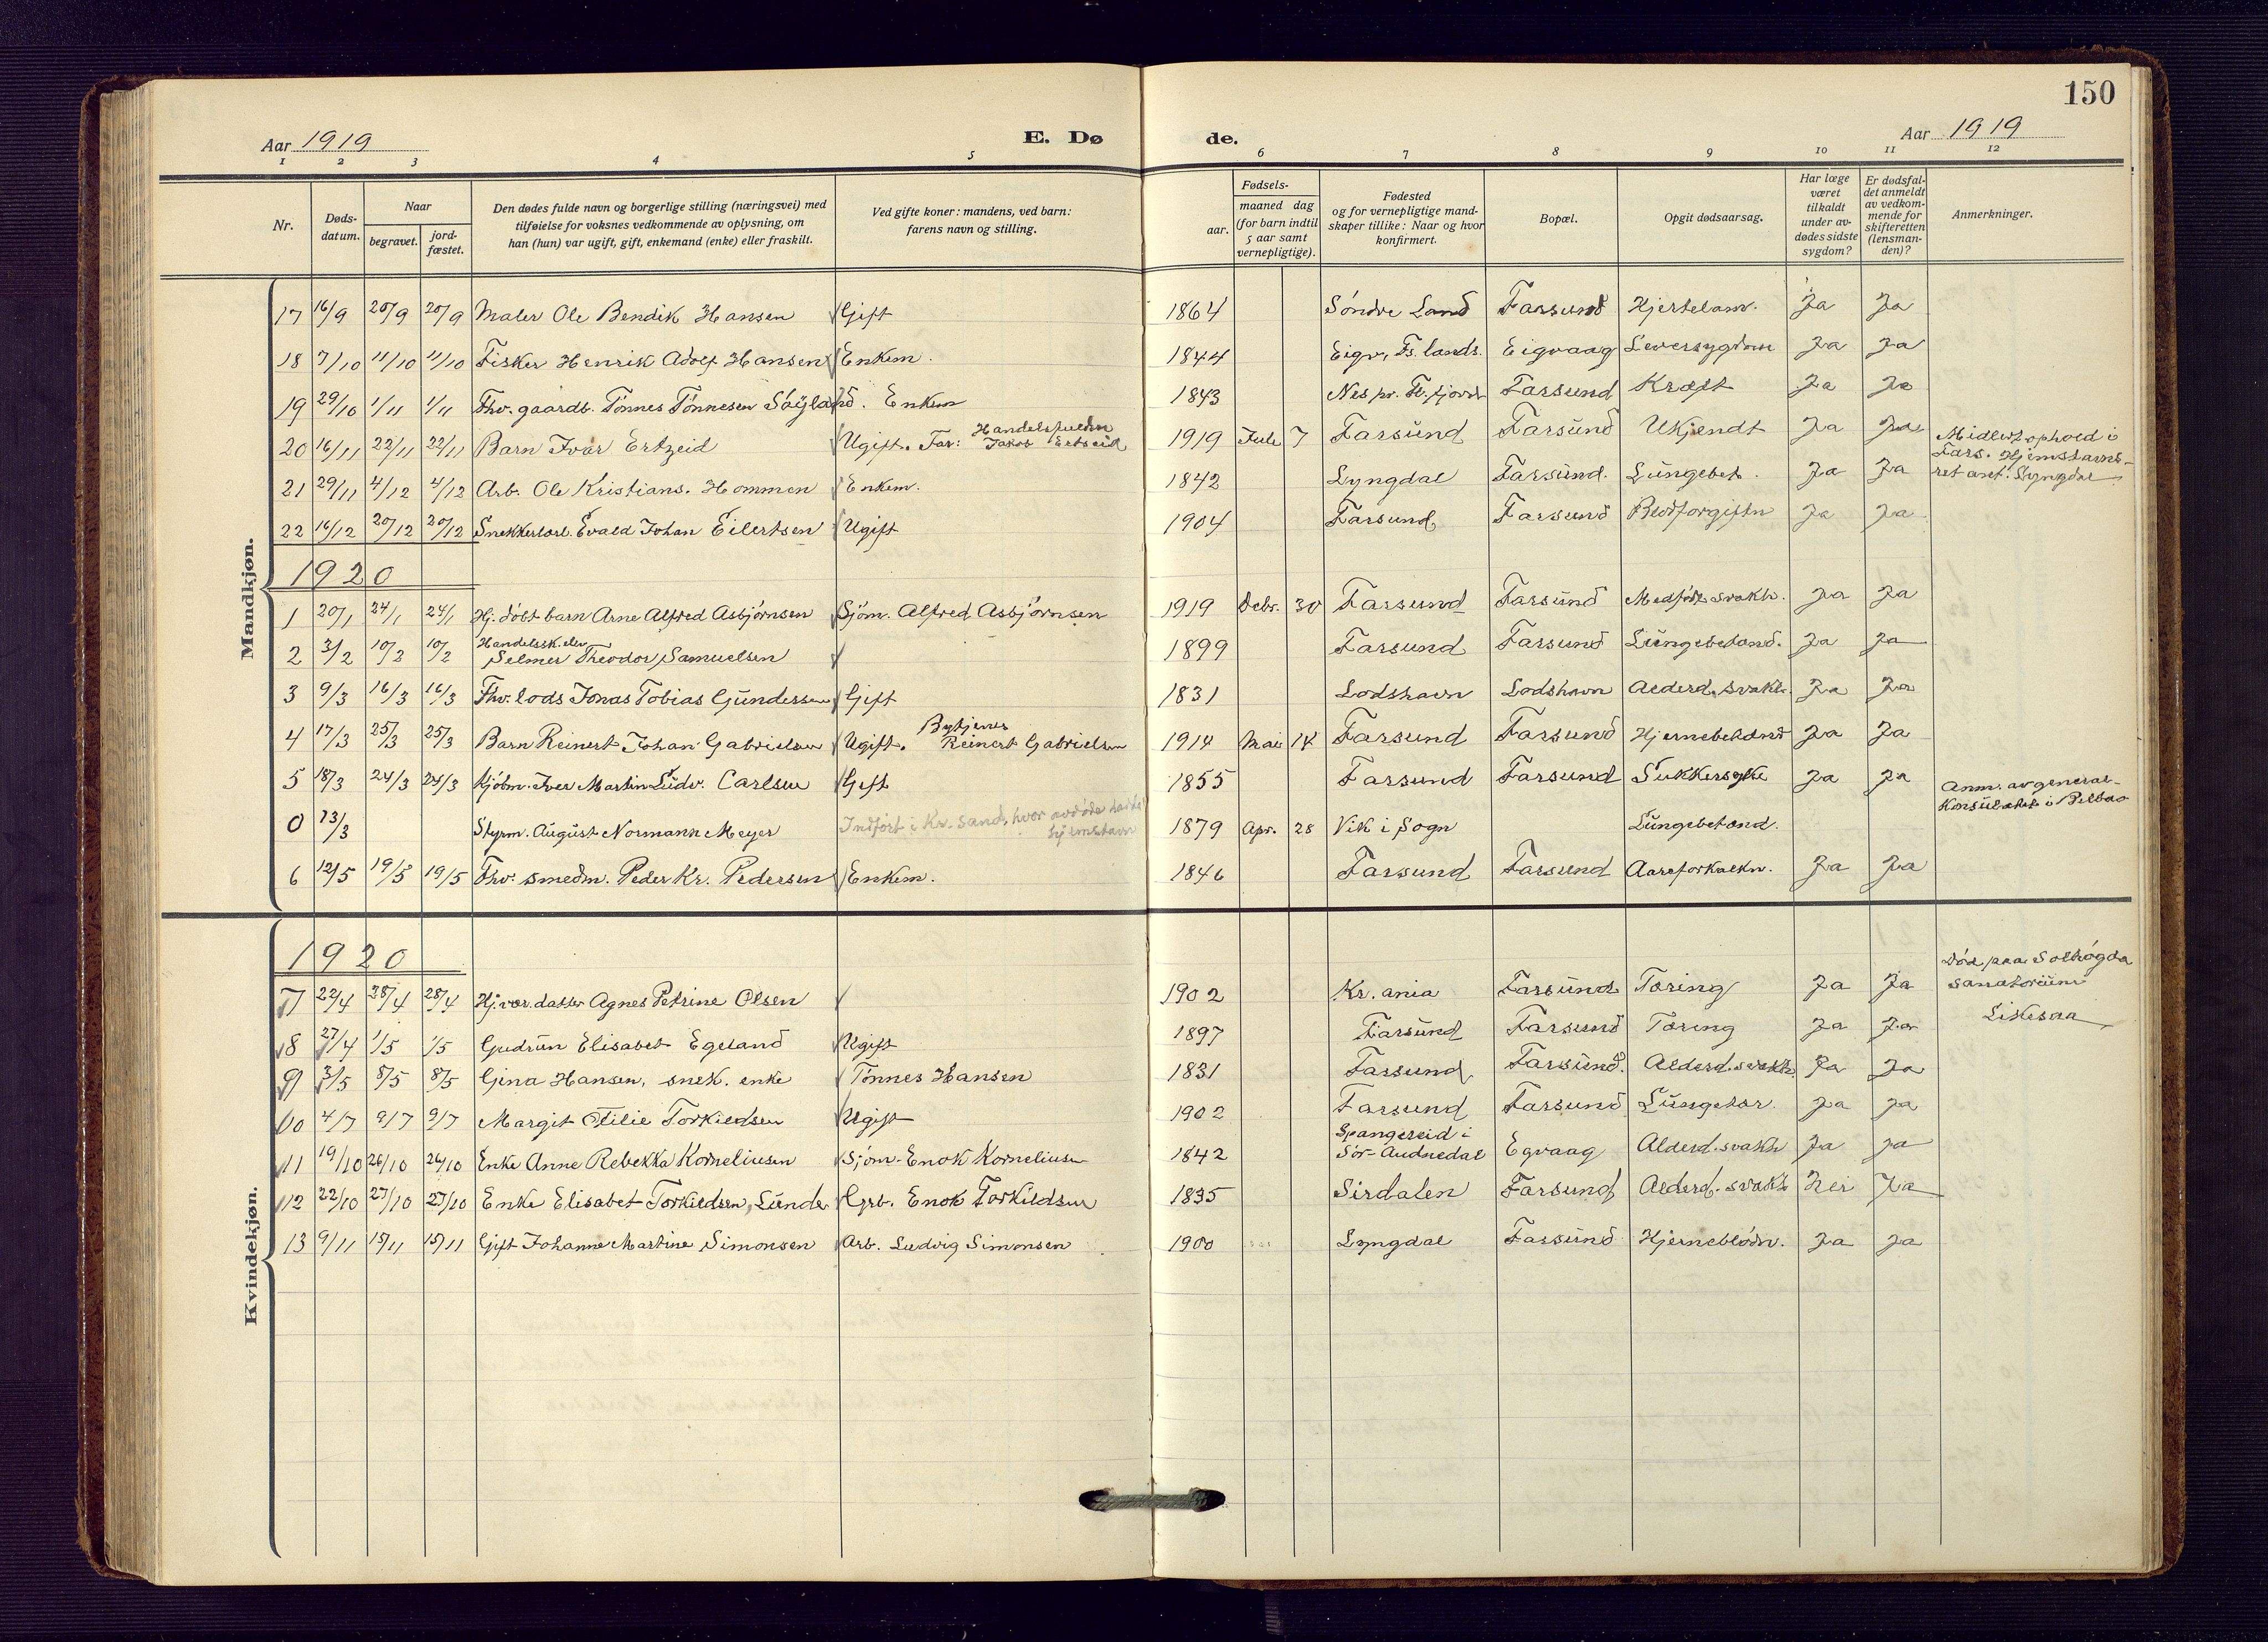 150
Aar 1919 E. Dø de. Aar 1919
1 2 3 4 5 6 7 8 9 10 11 12
Nr. Døds-datum. Naar begravet. jord-fæstet. Den dødes fulde navn og borgerlige stilling (næringsvei) med tilføielse for voksnes vedkommende av oplysning, om han (hun) var ugift, gift, enkemand (enke) eller fraskilt. Ved gifte koner: mandens, ved barn: farens navn og stilling. Fødsels- aar. maaned dag (for barn indtil 5 aar samt vernepligtige). Fødested og for vernepligtige mand-skaper tillike: Naar og hvor konfirmert. Bopæl. Opgit dødsaarsag. Har læge været tilkaldt under av-dødes sidste sygdom? Er dødsfal-det anmeldt av vedkom-mende for skifteretten (lensman-den)? Anmerkninger.
Mandkjøn.
17 16/9 20/9 20/9 Maler Ole Bendik Hansen Gift 1864 Søndre Land Farsund Hjertelam. Ja Ja
18 7/10 11/10 11/10 Fisker Henrik Adolf Hansen Enkem. 1844 Eigv. Fs. lands. Eigvaag Leversygdom Ja Ja
19 29/10 1/11 1/11 Fhv. gaardb. Tönnes Tönnesen Söyland. Enkem 1843 Nes pr. Fl. fjord Farsund Kræft Ja Ja
20 16/11 22/11 22/11 Barn Ivar Ertzeid Ugift. Far: Handelsfuldm Jakob Ertzeid 1919 Jule 7 Farsund Farsund Ukjendt Ja Ja
21 29/11 4/12 4/12 Arb. Ole Kristians. Hommen Enkem. 1842 Lyngdal Farsund. Lungebet. Ja Ja Midlert. ophold i Fars. Hjemstavns-ret ant. Lyngdal
22 16/12 20/12 20/12 Snekkerlærl. Evald Johan Eilertsen Ugift 1904 Farsund Farsund Blodforgiftn Ja Ja
1920
1 20/1 24/1 24/1 Hj. döbt barn Arne Alfred Asbjörnsen Sjöm. Alfred Asbjörnsen 1919 Debr. 30 Farsund Farsund Medfödt svakh. Ja Ja
2 3/2 10/2 10/2 Handelssk.elev Selmer Theodor Samuelsen 1899 Farsund Farsund Lungebetænd. Ja Ja
3 9/3 16/3 16/3 Fhv. lods Jonas Tobias Gundersen Gift 1831 Lodshavn Lodshavn Alderd. svakh. Ja Ja
4 17/3 25/3 25/3 Barn Reinert Johan Gabrielsen Ugift. Bytjener Reinert Gabrielsen 1914 Mai 14 Farsund Farsund Hjernebetænd Ja Ja
5 18/3 24/3 24/3 Kjöbm. Iver Martin Ludv. Carlsen Gift 1855 Farsund Farsund Sukkersyke Ja Ja
0 13/3 Styrm. August Normann Meyer Indfört i Kr.sand, hvor avdöde hadde hjemstavn 1879 Apr. 28 Vik i Sogn Lungebetænd. Anm. av general-konsulatet i Bilbao
6 12/5 19/5 19/5 Fhv. smedm. Peder Kr. Pedersen Enkem. 1846 Farsund Farsund Aareforkalkn. Ja Ja
Kvindekjøn.
1920
7 22/4 28/4 28/4 Hj.vær. datter Agnes Petrine Olsen 1902 Kr.ania Farsund Tæring Ja Ja Död paa Solhögda sanatorium
8 27/4 1/5 1/5 Gudrun Elisabet Egeland Ugift 1897 Farsund Farsund Tæring Ja Ja Liknes
9 3/5 8/5 8/5 Gina Hansen, snek. enke Tönnes Hansen 1831 Farsund Farsund. Alderd. svakh. Ja Ja
10 4/7 9/7 9/7 Margit Otilie Torkildsen Ugift 1902 Farsund Farsund Lungetær. Ja Ja
11 19/10 26/10 26/10 Enke Anne Rebekka Korneliusen Sjöm. Enok Korneliusen 1842 Spangereid i Sör-Audnedal Egvaag Alderd. svakh Ja Ja
12 22/10 27/10 27/10 Enke Elisabet Torkildsen, Lunde Grb. Enok Torkildsen 1835 Sirdalen Farsund Alderd. svakh Nei Ja
13 9/11 15/11 15/11 Gift Johanne Martine Simonsen Arb. Ludvig Simonsen 1900 Lyngdal Farsund Hjerneblödn. Ja Ja